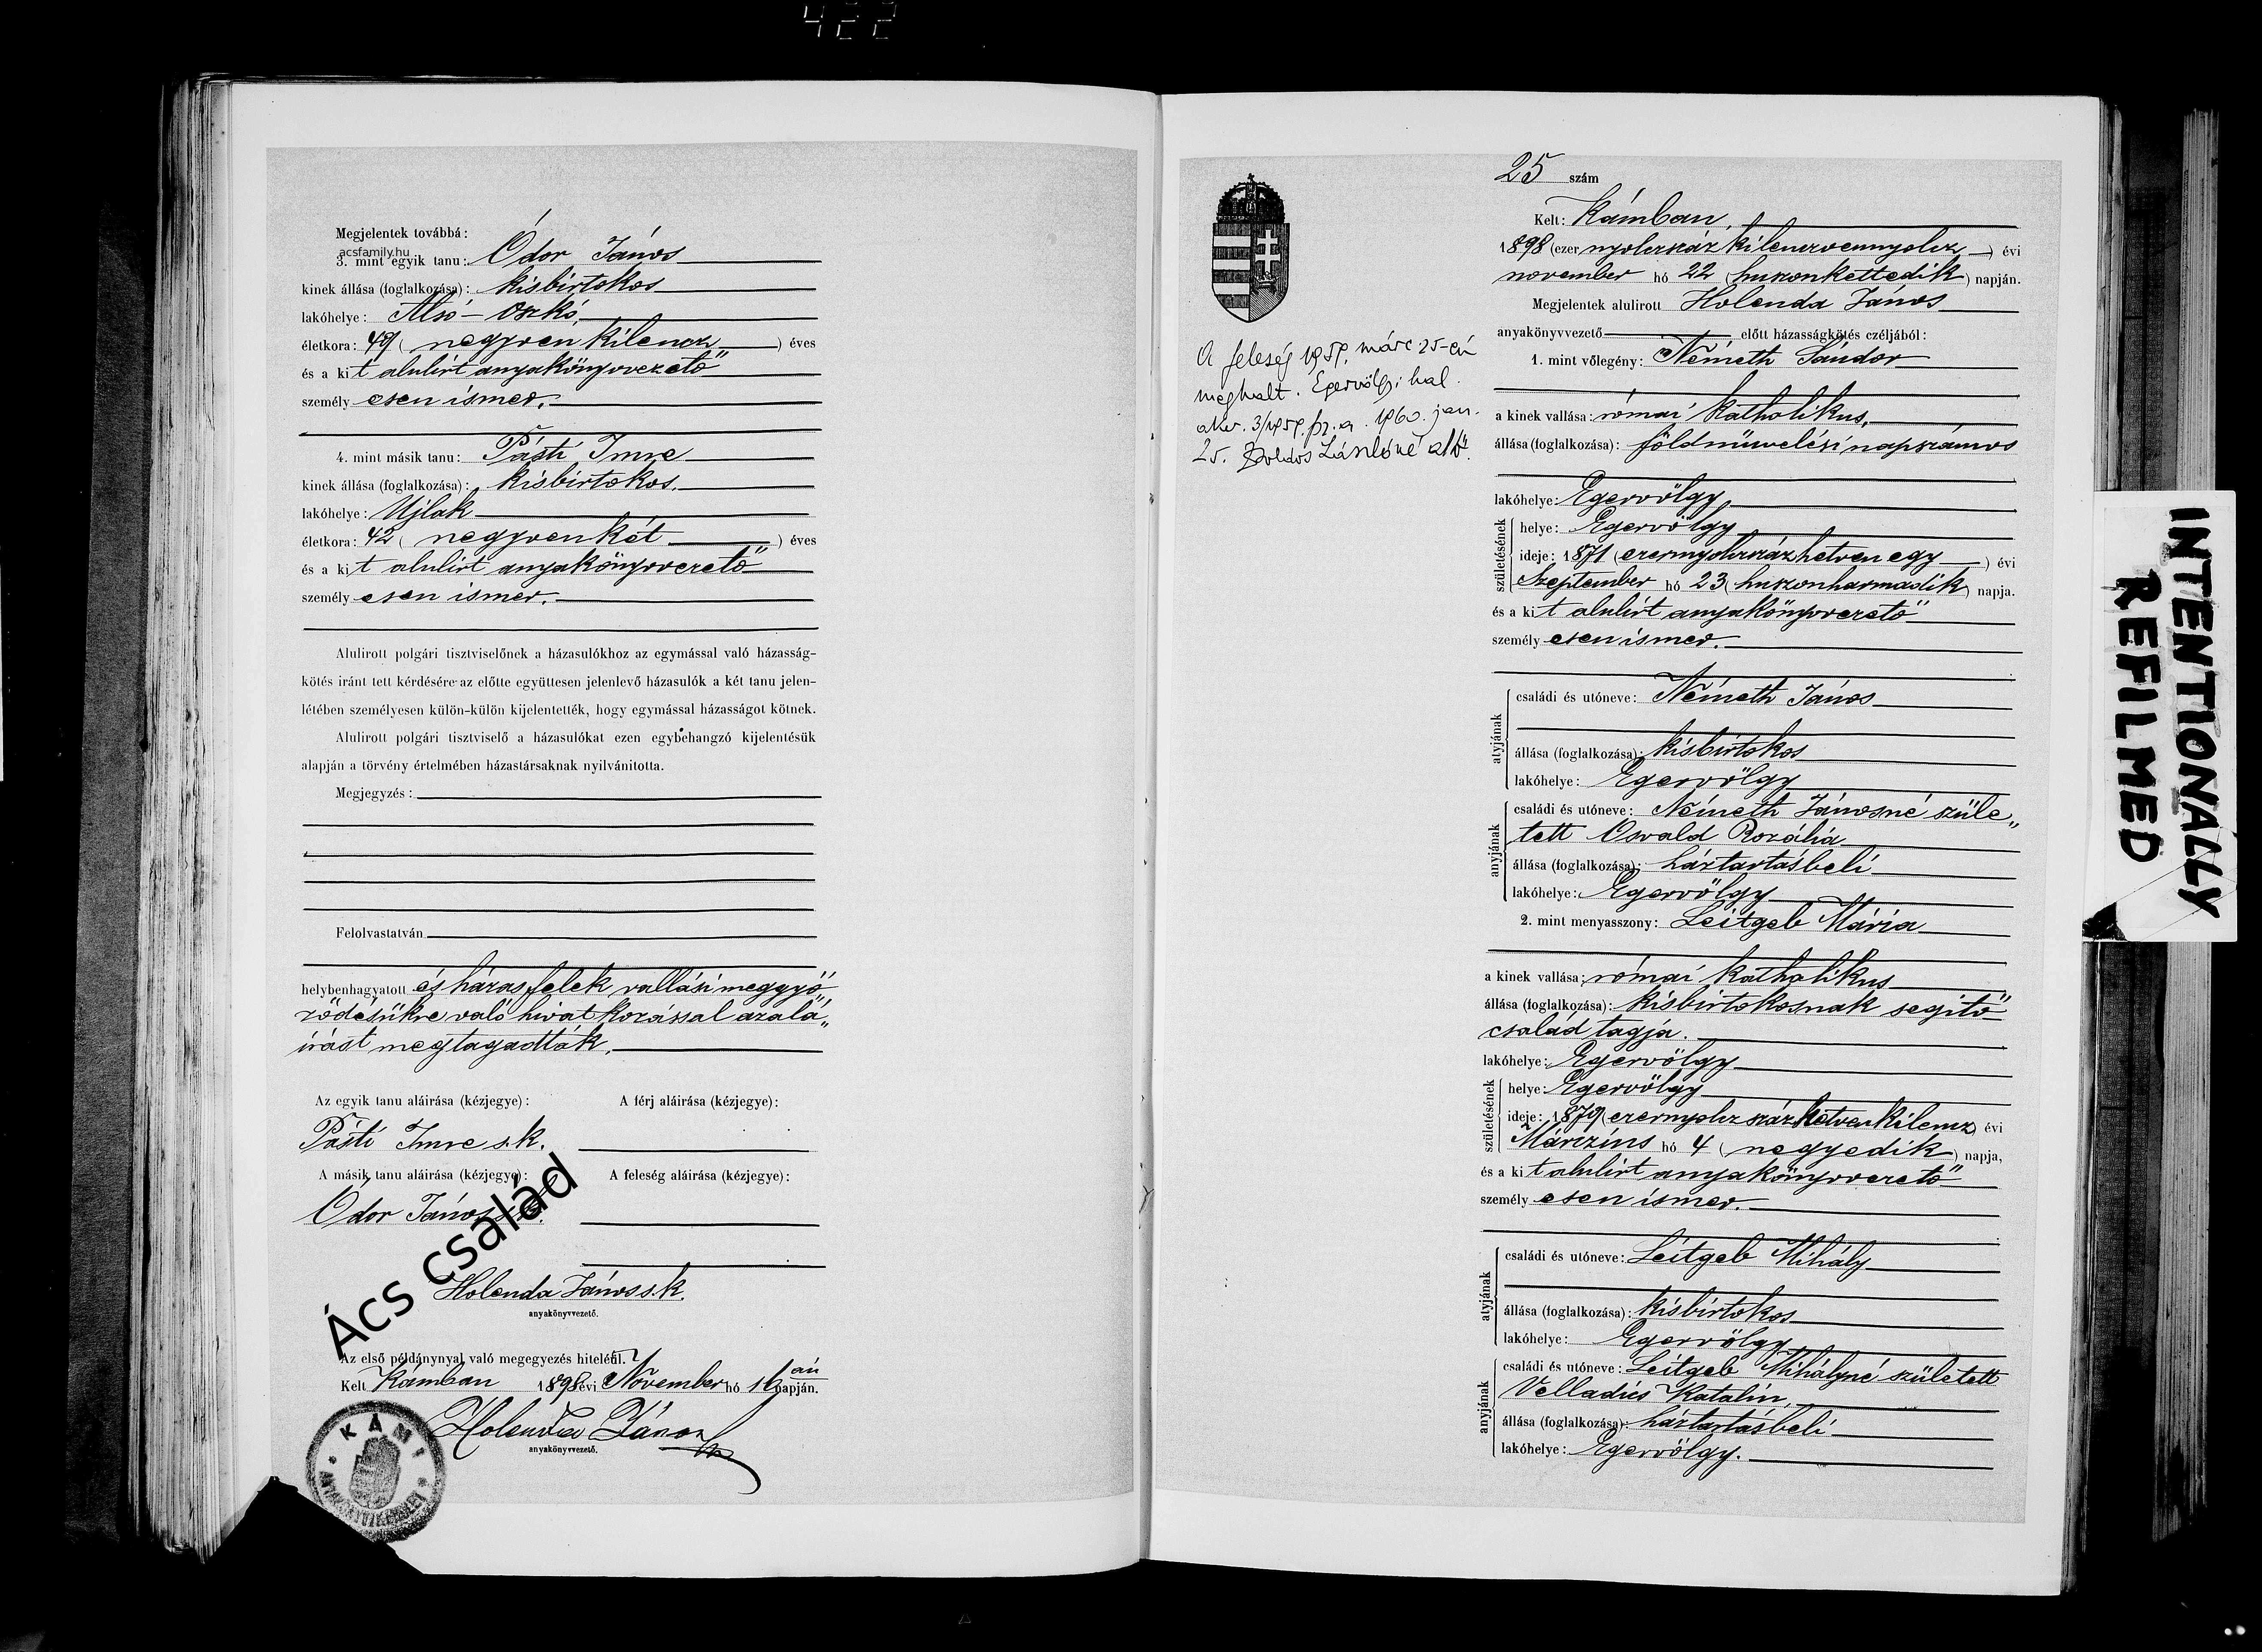 422
Megjelentek továbbá:
acsfamily.hu
3. mint egyik tanu: Ódor János
kinek állása (foglalkozása): kisbirtokos
lakóhelye: Alsó-Oszkó,
életkora: 49 (negyven kilencz) éves
és a kit alulírt anyakönyvvezető"
személyesen ismer.
4. mint másik tanu: Pásti Imre
kinek állása (foglalkozása): kisbirtokos.
lakóhelye: Ujlak
életkora: 42 (negyvenkét) éves
és a kit alulírt anyakönyvvezető"
személyesen ismer.
Alulirott polgári tisztviselőnek a házasulókhoz az egymással való házasság-
kötés iránt tett kérdésére az előtte együttesen jelenlevő házasulók a két tanu jelen-
létében személyesen külön-külön kijelentették, hogy egymással házasságot kötnek.
Alulirott polgári tisztviselő a házasulókat ezen egybehangzó kijelentésük
alapján a törvény értelmében házastársaknak nyilvánitotta.
Megjegyzés:
Felolvastatván
helybenhagyatott és házasfelek vallási meggyő"
ződésükre való hivatkozással az alá"
írást megtagadták.
Az egyik tanu aláirása (kézjegye):
A férj aláirása (kézjegye):
Pásti Imre s.k.
A másik tanu aláirása (kézjegye):
A feleség aláirása (kézjegye):
Ódor János
Ács család
Holenda János s.k.
anyakönyvvezető.
Az első példánynyal való megegyezés hiteléül.
Kelt Kámban 1898 évi November hó 16 án napján.
Holenda János
anyakönyvvezető.
KÁMI
25 szám
Kelt: Kámban,
1898 (ezer nyolczszáz kilenczvennyolcz) évi
november hó 22 (huszonkettedik) napján.
Megjelentek alulirott Holenda János
anyakönyvvezető előtt házasságkötés czéljából:
1. mint vőlegény: Németh Sándor
a kinek vallása: római katholikus,
állása (foglalkozása): földművelési napszámos
lakóhelye: Egervölgy,
születésének
helye: Egervölgy
ideje: 1871 (ezernyolczszázhetvenegy) évi
Szeptember hó 23 (huszonharmadik) napja.
és a kit alulírt anyakönyvvezető"
személyesen ismer.
atyjának
családi és utóneve: Németh János
állása (foglalkozása): kisbirtokos
lakóhelye: Egervölgy
anyjának
családi és utóneve: Németh Jánosné szüle"
tett Osvald Rozália
állása (foglalkozása): háztartásbeli
lakóhelye: Egervölgy
2. mint menyasszony: Leitgeb Mária
a kinek vallása: római katholikus
állása (foglalkozása): kisbirtokosnak segítő"
család tagja.
lakóhelye: Egervölgy
születésének
helye: Egervölgy
ideje: 1879 (ezernyolczszázhetvenkilencz) évi
Márczius hó 4 (negyedik) napja,
és a kit alulírt anyakönyvvezető"
személyesen ismer.
atyjának
családi és utóneve: Leitgeb Mihály
állása (foglalkozása): kisbirtokos
lakóhelye: Egervölgy
anyjának
családi és utóneve: Leitgeb Mihályné született
Velladics Katalin,
állása (foglalkozása): háztartásbeli
lakóhelye: Egervölgy.
A feleség 1957. márc 25-én
meghalt. Egervölgyi hal.
akv. 3/1957. fz. a. 1960. jan.
25. Boldos Lászlóné
INTENTIONALLY
REFILMED